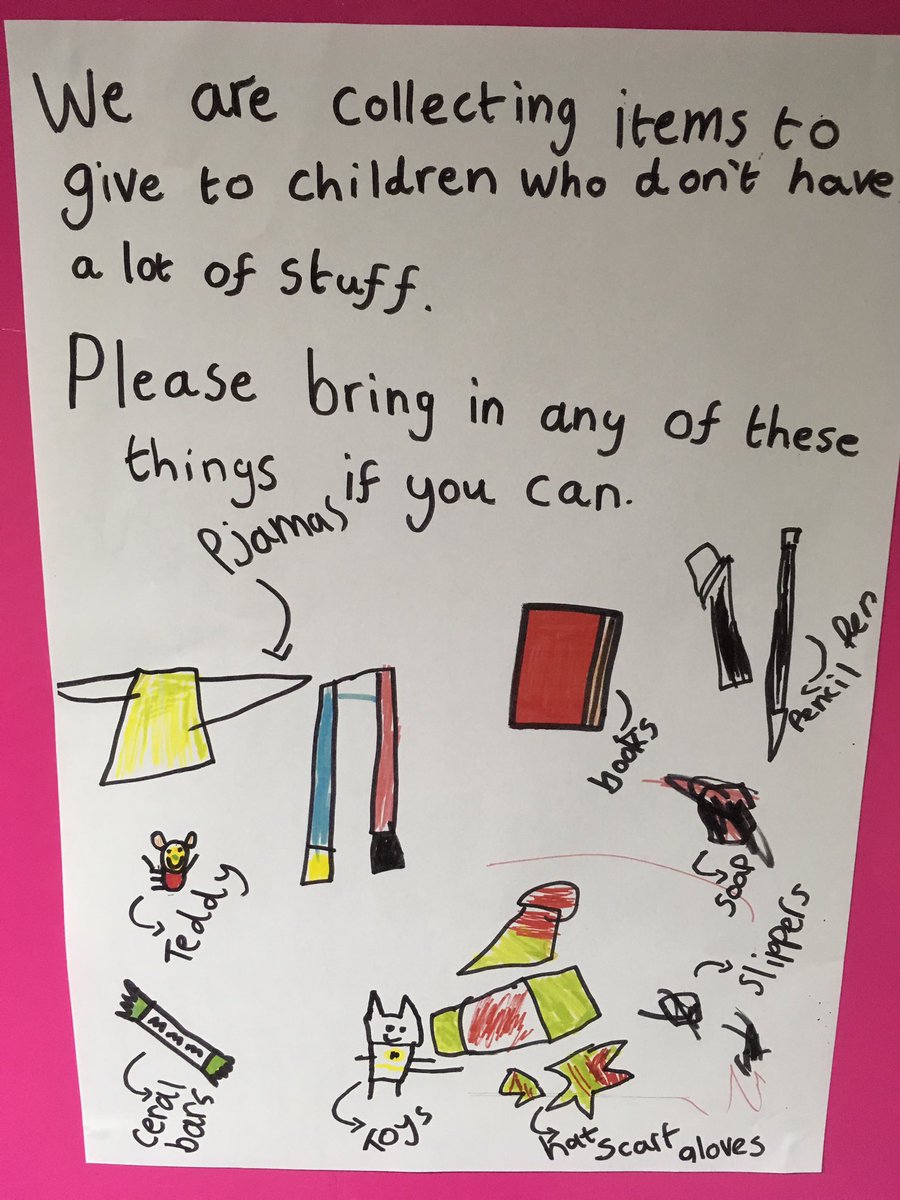 We are collecting items to
give to children who don't have
a lot of stuff.
Please bring in any of these
things if you can.
Pjamas
books
Pencil Pen
Soap
Teddy
slippers
ceral
bars
Toys
hat scarf gloves
mmmm